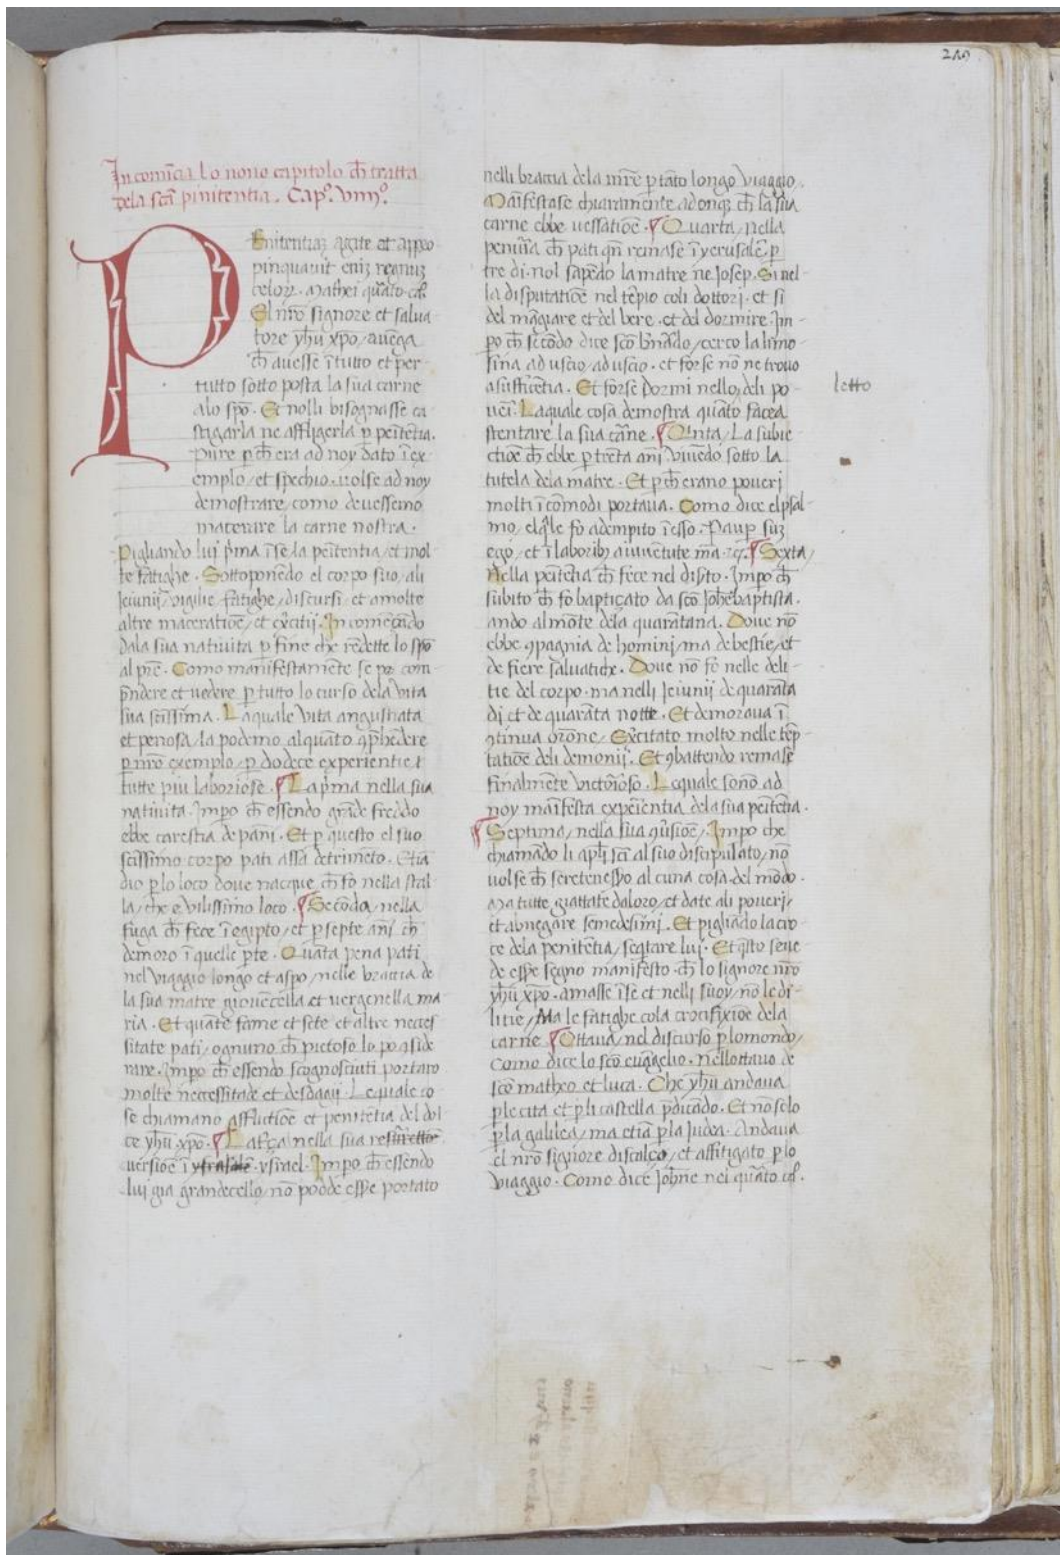 In comīcia lo nono capitolo ch̄ tratta
dela scā pinitentia. Cap°. viiij°.
Enitentiaȝ agite et appo
pinquavit eniȝ regnuȝ
celoꝝ. Mathei q̄rto ca°.
El nr̄o signore et salua
tore yhū xpō, auēga
ch̄ auesse ī tutto et per
tutto sotto posta la sua carne
alo spō. Et nolli bisognasse ca
stigarla ne affligerla ꝑ penitētia.
Pure ꝑ ch̄ era ad noy dato ī ex
emplo, et spechio. uolse ad noy
demostrare, como deuessemo
macerare la carne nostra.
Pigliando luj p̄ma ī se la penitētia, et mol
te fatighe. Sottoponēdo el corpo suo, ali
Jeiunij, vigilie, fatighe, discursi, et a molte
altre maceratiōe, et exc̄itij. In comēçando
dala sua natiuita ꝑ fine che redette lo spō
al pr̄e. Como manifestamēte se po com
p̄ndere et uedere ꝑ tutto lo curso dela vita
sua scīssima. Laquale vita angustiata
et penosa, la podemo alquāto ꝯp̄hēdere
ꝑ nr̄o exemplo, ꝑ dodece experientie
tutte piu laboriose. ¶ La p̄ma nella sua
natiuita. Impo ch̄ essendo grāde freddo
ebbe carestia de panī. Et ꝑ questo el suo
scīssimo corpo pati assa detrimēto. Etiā
dio ꝑ lo loco doue nacque, ch̄ fo nella stal
la, che e vilissimo loco. ¶ Secōda, nella
fuga ch̄ fece ī egipto, et ꝑ septe anī ch̄
demoro ī quelle ꝑte. Quāta pena pati
nel viaggio longo et aspo, nelle braccia de
la sua matre giouēcella et uergenella ma
ria. Et quāte fame et sete et altre neces
sitate pati, ognuno ch̄ pietoso lo po ꝯside
rare. Impo ch̄ essendo scognosciuti portaro
molte necessitade et desdagij. Le quale co
se chiamano afflictiōe et penitētia del dol
ce yhū xpō. ¶ La t̄rça nella sua
uersiōe ī ysrael. Impo ch̄ essendo
luj gia grandecello, nō podde esse portato
nelli braccia dela mr̄e ꝑ tāto longo viaggio.
Manīfestase chiaramente adonqȝ ch̄ la sua
carne ebbe uessatiōe. ¶ Quarta, nella
penuria ch̄ pati qn̄ remase ī yerusalē, ꝑ
tre di. nol sapēdo la matre ne Josep. Si nel
la disputatiōe nel tēpio coli dottori. et si
del māgiare et del bere. et del dormire. Im
po ch̄ secōdo dice scō bn̄ado, cerco la limo
sina ad uscio, ad uscio. et forse nō ne trouo
a sufficētia. Et forse dormi nello, deli po
letto
uerī. La quale cosa demostra quāto facea
stentare la sua carne. ¶ Qīnta, La subie
ctiōe ch̄ ebbe ꝑ trēta anī viuēdo sotto la
tutela dela matre. Et ꝑ ch̄ erano poueri
molti ī cōmodi portaua. Como dice el psal
mo, el q̄le fo adempito ī esso. Paup̄ suȝ
ego, et ī laboribȝ a iuuētute m̄a. ¶ Sexta,
Nella penitētia ch̄ fece nel disto. Impo ch̄
subito ch̄ fo baptiçato da scō Johē baptista.
ando al mōte dela quarātana. Doue nō
ebbe ꝯpagnia de hominj, ma de bestie, et
de fiere saluatiche. Doue nō fo nelle deli
tie del corpo. ma nelli Jeiunij de quarāta
di et de quarāta notte. Et demoraua ī
ꝯtinua orōne, Exc̄itato molto nelle tēp
tatiōe deli demonij. Et ꝯbattendo remase
finalmēte victorioso. Le quale sonō ad
noy manīfesta experiētia dela sua penitētia.
¶ Septima, nella sua ꝯu̓siōe. Impo che
chiamādo li apl̄i scī al suo discipulato, nō
uolse ch̄ se retenesso alcuna cosa del mōdo.
Ma tutte giattate da loro, et date ali poueri,
et abnegare semedesimj. Et pigliādo la cro
ce dela penitētia, seq̄tare luj. Et q̄sto seue
de esse segno manifesto. ch̄ lo signore nr̄o
yhū xpō. amasse ī se et nelli suoy, nō le di
litie, Ma le fatighe cola crocifixiōe dela
carne. ¶ Ottaua, nel discurso ꝑ lo mondo,
Como dice lo scō euāgelio. nellottauo de
scō matheo et luca. Che yhū andaua
ꝑ le cita et ꝑ li castella p̄dicādo. Et nō solo
ꝑ la galilea, ma etiā ꝑ la Judea. Andaua
el nr̄o signore discalço, et affatigato ꝑ lo
viaggio. Como dice John̄e nel quāto ca°.